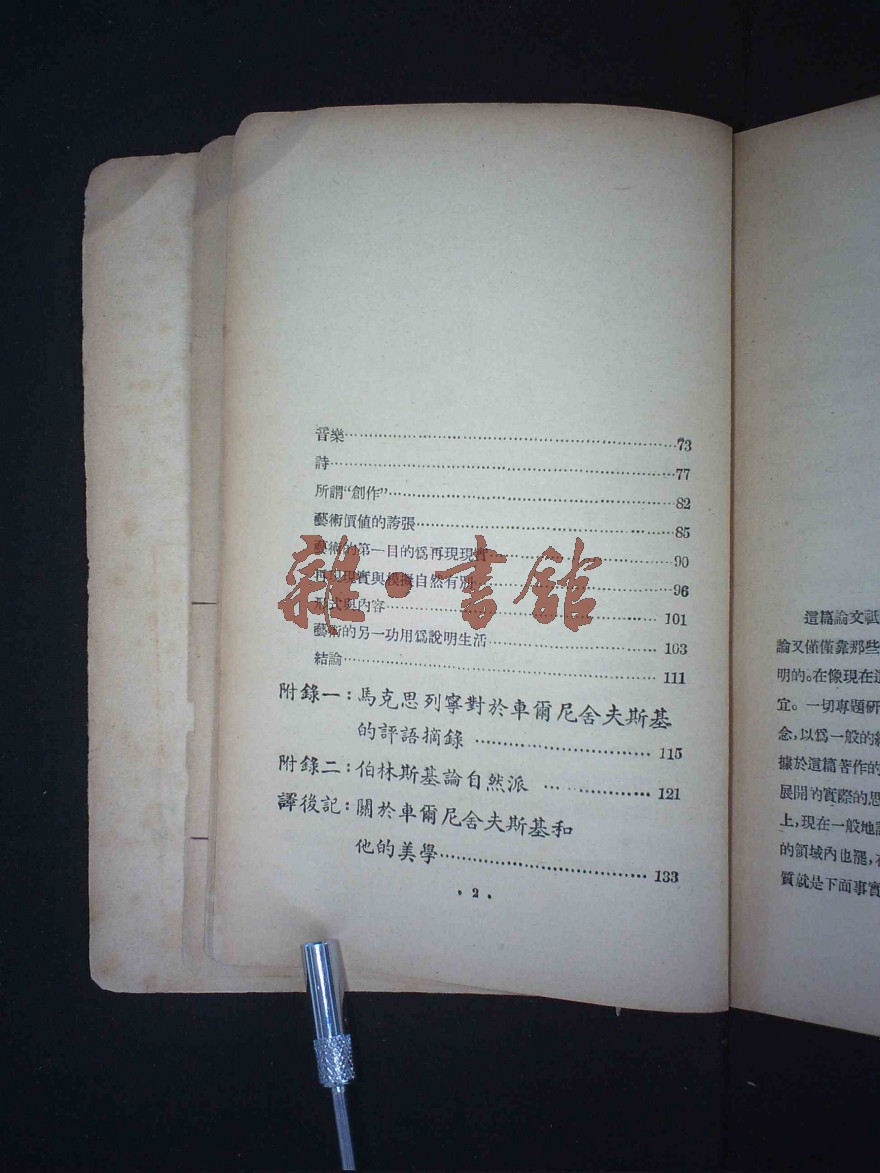 音樂……73
詩……77
所謂“創作”……82
藝術價值的誇張……85
藝術的第一目的爲再現現實……90
再現現實與模擬自然有別……96
形式與內容……101
藝術的另一功用爲說明生活……103
結論……111
附錄一：馬克思列寧對於車爾尼舍夫斯基
的評語摘錄……115
附錄二：伯林斯基論自然派……121
譯後記：關於車爾尼舍夫斯基和
他的美學……133
·2·
雜·書館
這篇論文祇
論又僅僅靠那些
明的。在像現在這
宜。一切專題研
念，以爲一般的
據於這篇著作的
展開的實際的思
上，現在一般地
的領域內也罷，
質就是下面事實